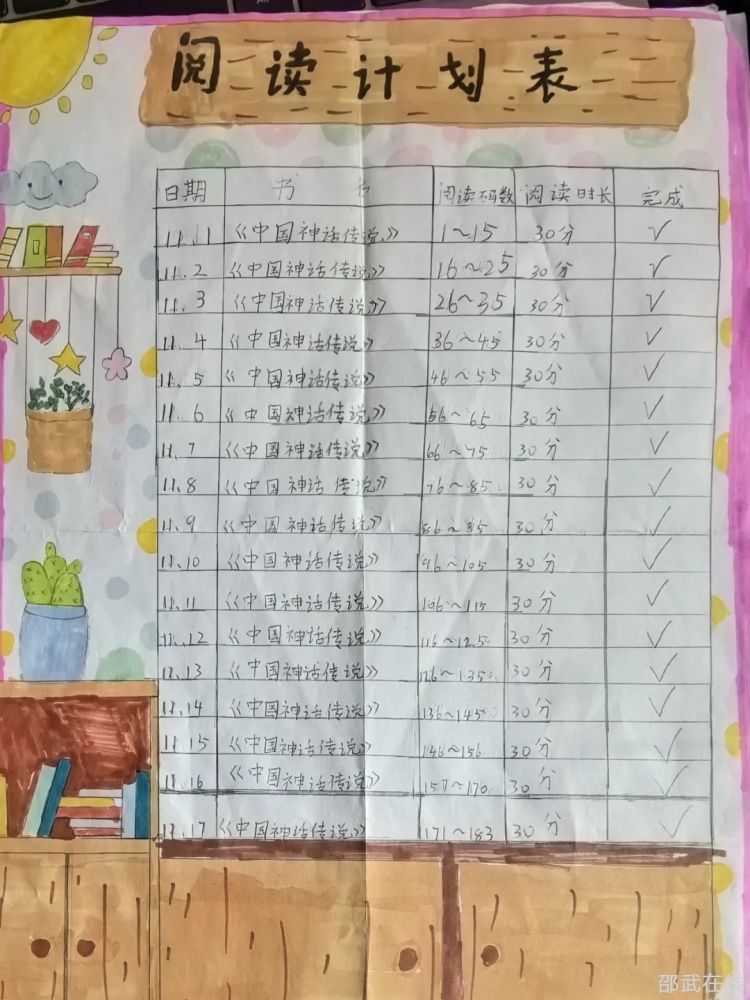 阅读计划表
日期 书 书 阅读码数 阅读时长 完成
11.1 《中国神话传说》 1~15 30分 √
11.2 《中国神话传说》 16~25 30分 √
11.3 《中国神话传说》 26~35 30分 √
11.4 《中国神话传说》 36~45 30分 √
11.5 《中国神话传说》 46~55 30分 √
11.6 《中国神话传说》 56~65 30分 √
11.7 《中国神话传说》 66~75 30分 √
11.8 《中国神话传说》 76~85 30分 √
11.9 《中国神话传说》 86~95 30分 √
11.10 《中国神话传说》 96~105 30分 √
11.11 《中国神话传说》 106~115 30分 √
11.12 《中国神话传说》 116~125 30分 √
11.13 《中国神话传说》 126~135 30分 √
11.14 《中国神话传说》 136~145 30分 √
11.15 《中国神话传说》 146~156 30分 √
11.16 《中国神话传说》 157~170 30分 √
11.17 《中国神话传说》 171~183 30分 √
邵武在